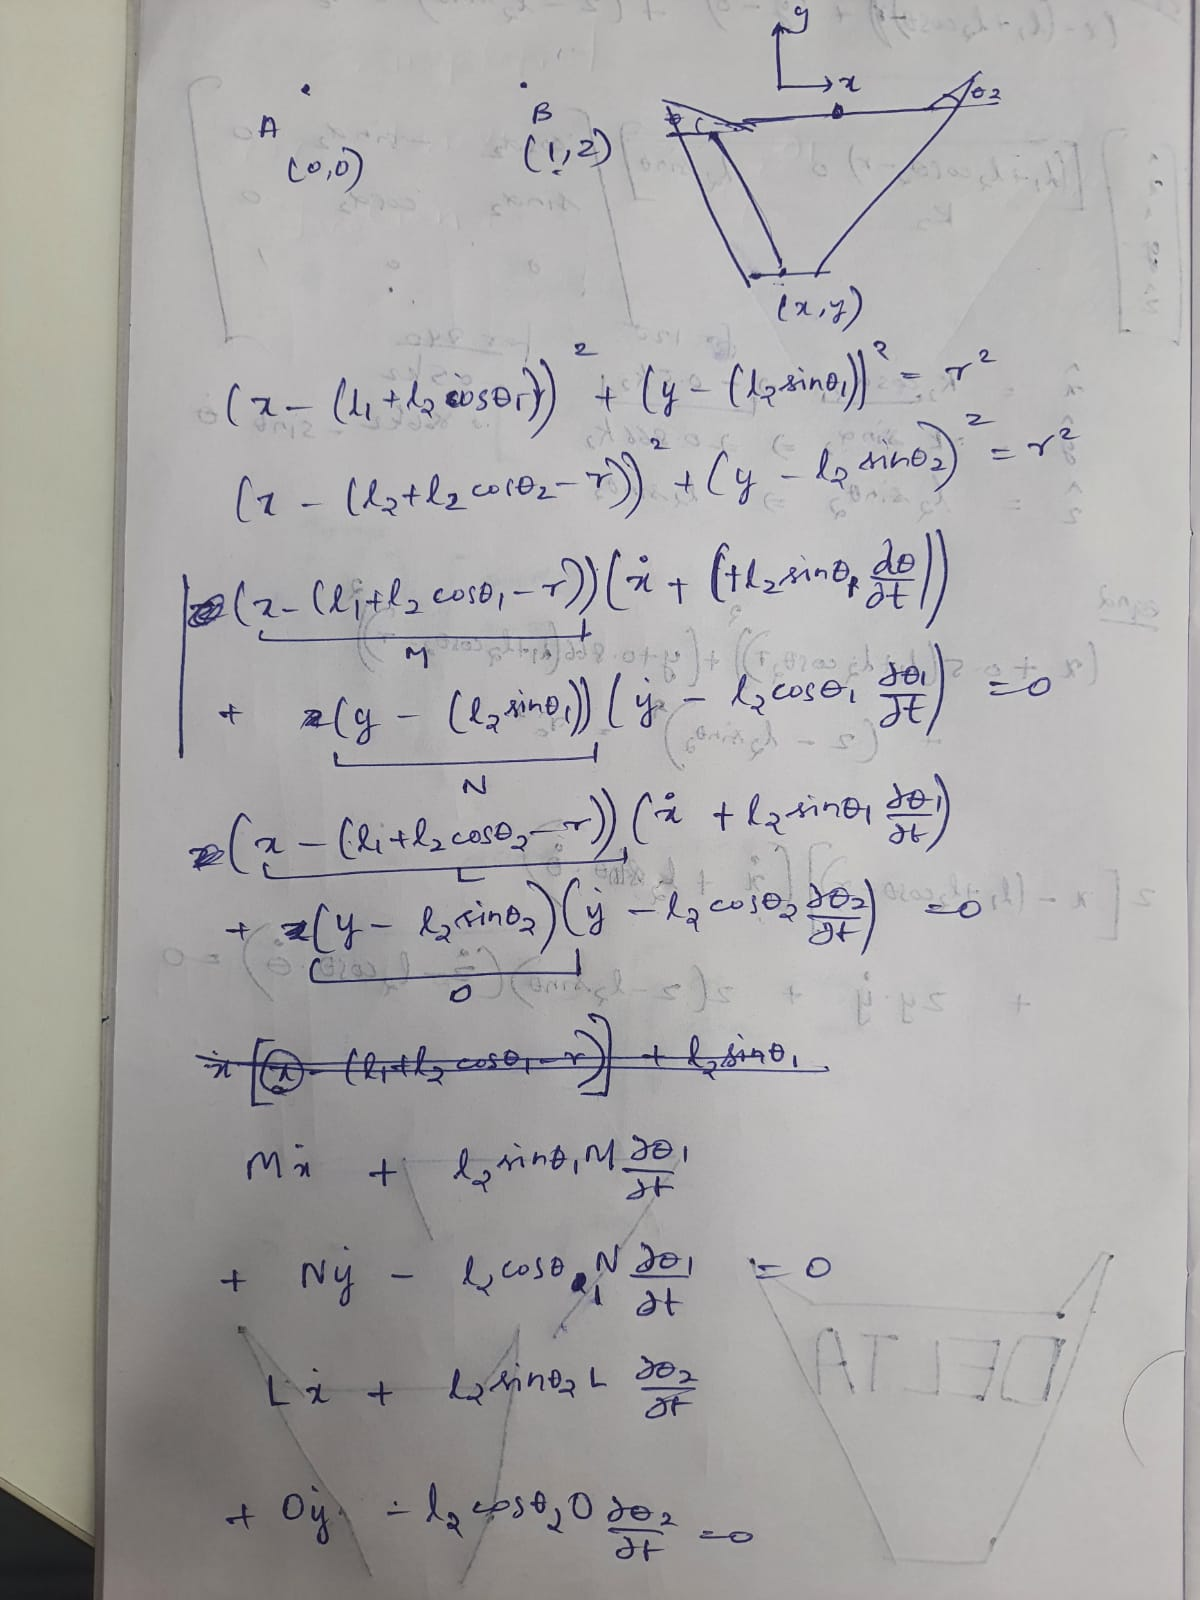 y
x
A
(0,0)
B
(1,2)
θ2
(x,y)
(x - (l₁ + l₂ cosθ₁))² + (y - (l₂ sinθ₁))² = r²
(x - (l₂ + l₂ cosθ₂ - r))² + (y - l₂ sinθ₂)² = r²
(x - (l₁ + l₂ cosθ₁ - r)) (ẋ + (+l₂ sinθ₁ ∂θ/∂t))
M
+ (y - (l₂ sinθ₁)) (ẏ - l₂ cosθ₁ ∂θ₁/∂t) = 0
N
(x - (l₁ + l₂ cosθ₂ - r)) (ẋ + l₂ sinθ₁ ∂θ₁/∂t)
L
+ (y - l₂ sinθ₂) (ẏ - l₂ cosθ₂ ∂θ₂/∂t) = 0
O
ẋ [x - (l₁ + l₂ cosθ₁ - r)] + l₂ sinθ₁
Mẋ + l₂ sinθ₁ M ∂θ₁/∂t
+ Nẏ - l₂ cosθ₁ N ∂θ₁/∂t = 0
Lẋ + l₂ sinθ₂ L ∂θ₂/∂t
+ Oẏ - l₂ cosθ₂ O ∂θ₂/∂t = 0
DELTA